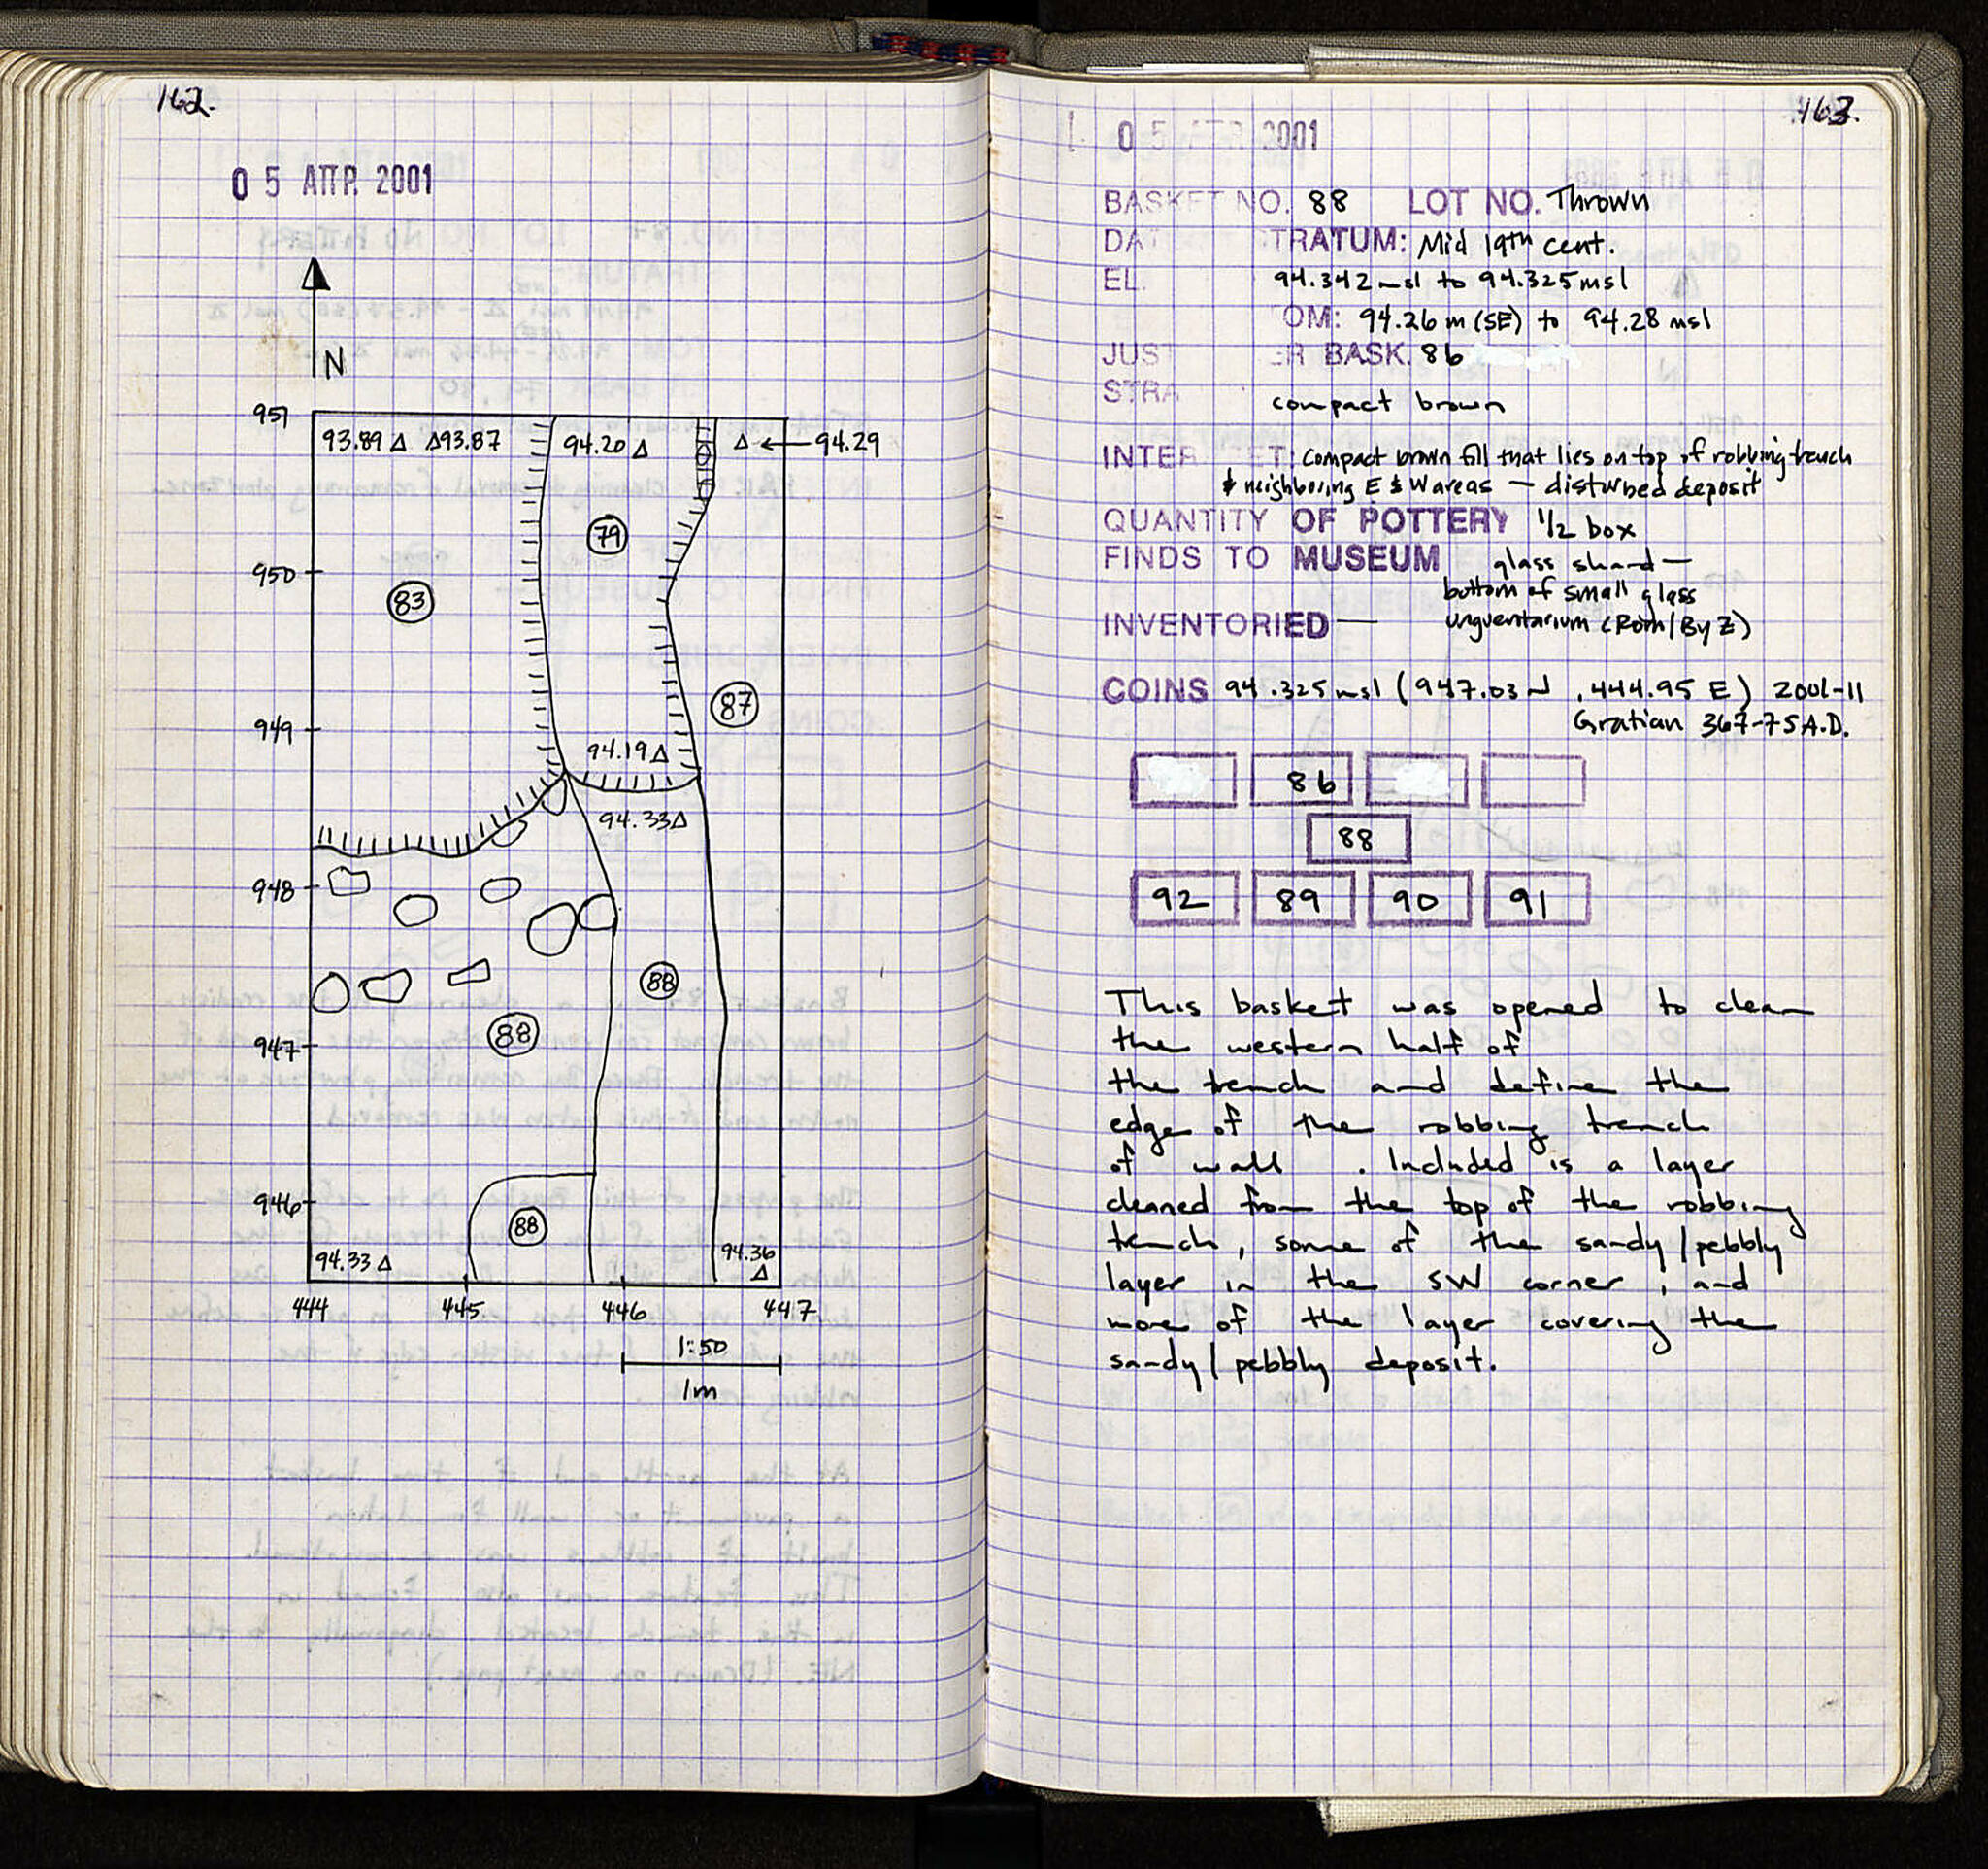 162.
0 5 ΑΠΡ. 2001
N
951
93.89 Δ Δ93.87
94.20 Δ
Δ ← 94.29
79
950
83
949
87
94.19 Δ
94.33 Δ
948
88
947
88
946
88
94.33 Δ
94.36
Δ
444 445 446 447
1:50
1m
163.
0 5 ΑΠΡ. 2001
BASKET NO. 88 LOT NO. Thrown
DA TRATUM: Mid 19th cent.
EL. 94.342 msl to 94.325 msl
OM: 94.26 m (SE) to 94.28 msl
JUST ER BASK. 86
STRA
compact brown
INTER ET: compact brown fill that lies on top of robbing trench
& neighboring E & W areas — disturbed deposit
QUANTITY OF POTTERY 1/2 box
FINDS TO MUSEUM glass shard —
bottom of small glass
INVENTORIED — unguentarium (Rom/Byz)
COINS 94.325 msl (947.03 N, 444.95 E) 2001-11
Gratian 367-75 A.D.
86
88
92 89 90 91
This basket was opened to clean
the western half of
the trench and define the
edge of the robbing trench
of wall . Included is a layer
cleaned from the top of the robbing
trench, some of the sandy/pebbly
layer in the SW corner, and
more of the layer covering the
sandy/pebbly deposit.